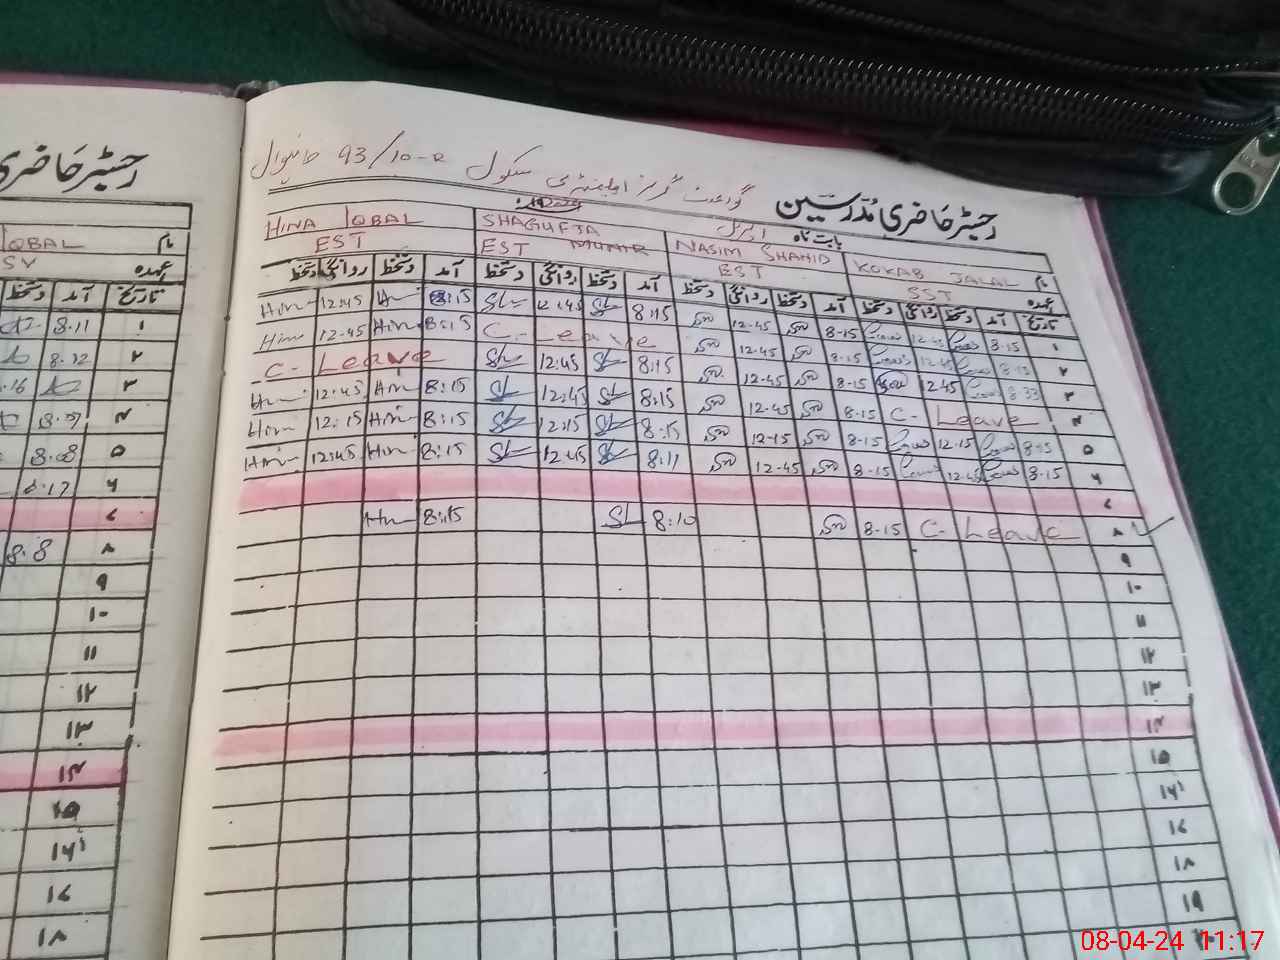 رجسٹر حاضری
IQBAL نام
SV عہدہ
دستخط آمد تاریخ
8.11 ۱
8.12 ۲
.16 ۳
8.09 ۴
8.08 ۵
8.17 ۶
۷
8.8 ۸
۹
۱۰
۱۱
۱۲
۱۳
۱۴
۱۵
۱۶
۱۷
۱۸
گورنمنٹ گرلز ایلیمنٹری سکول 93/10-R خانیوال
رجسٹر حاضری مدرسین
بابت ماہ اپریل
نام KOKAB JALAL NASIM SHAHID SHAGUFTA MUNIR HINA IQBAL
عہدہ SST EST EST EST
تاریخ آمد دستخط روانگی دستخط آمد دستخط روانگی دستخط آمد دستخط روانگی دستخط آمد دستخط روانگی دستخط
۱ 8-15 12-45 8-15 12-45 8:15 12:45 8:15 12:45
۲ 8-15 12-45 8-15 12-45 C- Leave 8:15 12-45
۳ 8-33 12-45 8-15 12-45 8:15 12:45 C- Leave
۴ C- Leave 8-15 12-45 8:15 12:45 8:15 12:45
۵ 8-15 12-15 8-15 12-15 8:15 12:15 8:15 12:15
۶ 8-15 12-45 8-15 12-45 8:11 12:45 8:15 12:45
۷
۸ C- Leave 8-15 8:10 8:15
۹
۱۰
۱۱
۱۲
۱۳
۱۴
۱۵
۱۶
۱۷
۱۸
۱۹
۲۰
08-04-24 11:17